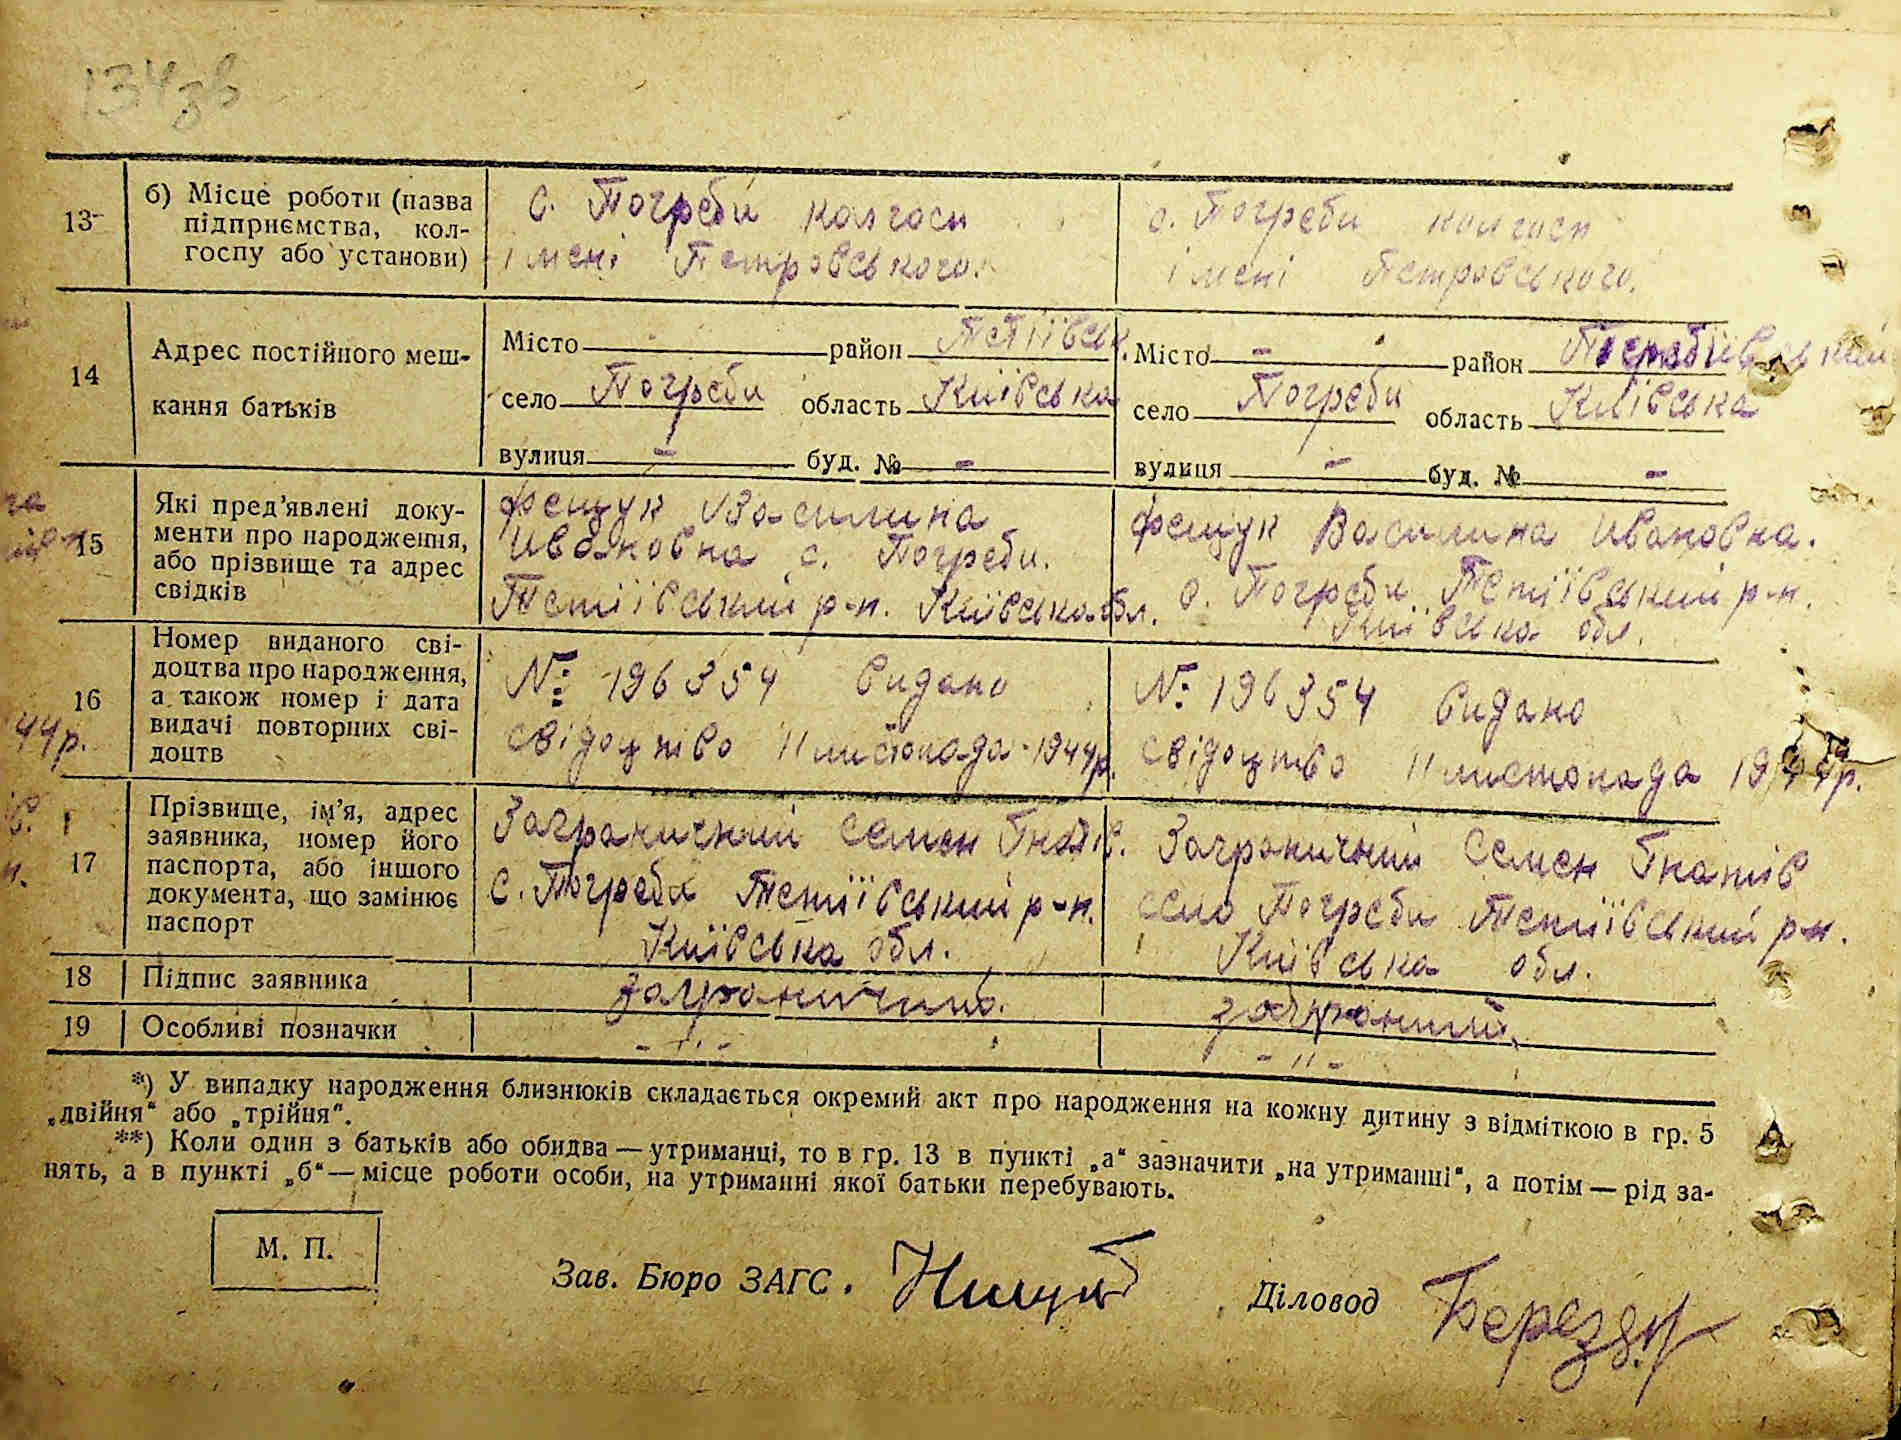 134зв
13 б) Місце роботи (назва підприємства, колгоспу або установи)
с. Погреби колгосп
імені Петровського.
с. Погреби колгосп
імені Петровського.
14 Адрес постійного мешкання батьків
Місто — район Тетіївськ.
село Погреби область Київська
вулиця — буд. № —
Місто — район
село Погреби область Київська
вулиця — буд. № —
15 Які пред'явлені документи про народження, або прізвище та адрес свідків
Фещук Василина
Ивановна с. Погреби.
Тетіївський р-н. Київська обл.
Фещук Василина Ивановна.
с. Погреби Тетіївський р-н.
Київська обл.
16 Номер виданого свідоцтва про народження, а також номер і дата видачі повторних свідоцтв
№ 196354 видано
свідоцтво 11 листопада 1944р.
№ 196354 видано
свідоцтво 11 листопада 1944р.
44р.
17 Прізвище, ім'я, адрес заявника, номер його паспорта, або іншого документа, що замінює паспорт
Заграничний Семен Гнатів.
с. Погреби Тетіївський р-н.
Київська обл.
Заграничний Семен Гнатів
село Погреби Тетіївський р-н.
Київська обл.
18 Підпис заявника
19 Особливі позначки
- " -
- " -
*) У випадку народження близнюків складається окремий акт про народження на кожну дитину з відміткою в гр. 5
„двійня“ або „трійня“.
**) Коли один з батьків або обидва — утриманці, то в гр. 13 в пункті „а“ зазначити „на утриманні“, а потім — рід за-
нять, а в пункті „б“ — місце роботи особи, на утриманні якої батьки перебувають.
М. П.
Зав. Бюро ЗАГС.
Діловод